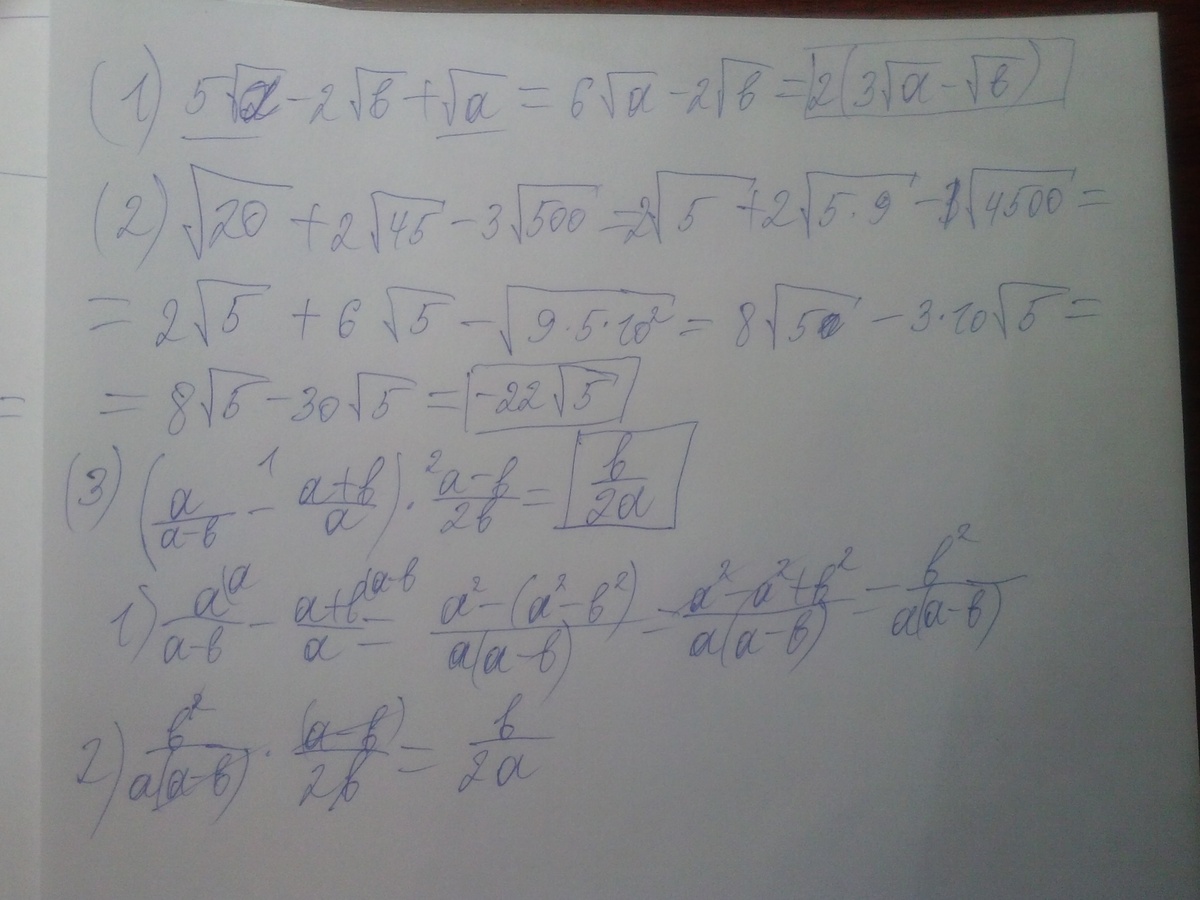 (1) 5√a - 2√b + √a = 6√a - 2√b = 2(3√a - √b)
(2) √20 + 2√45 - 3√500 = 2√5 + 2√5·9 - √4500 =
= 2√5 + 6√5 - √9·5·10² = 8√5 - 3·10√5 =
= 8√5 - 30√5 = -22√5
(3) (a/(a-b) -¹ (a+b)/a) ·² (a-b)/2b = b/2a
1) a(a/(a-b) - a+b(a-b/a = (a²-(a²-b²))/(a(a-b)) = (a²-a²+b²)/(a(a-b)) = b²/(a(a-b))
2) b²/(a(a-b)) · (a-b)/2b = b/2a